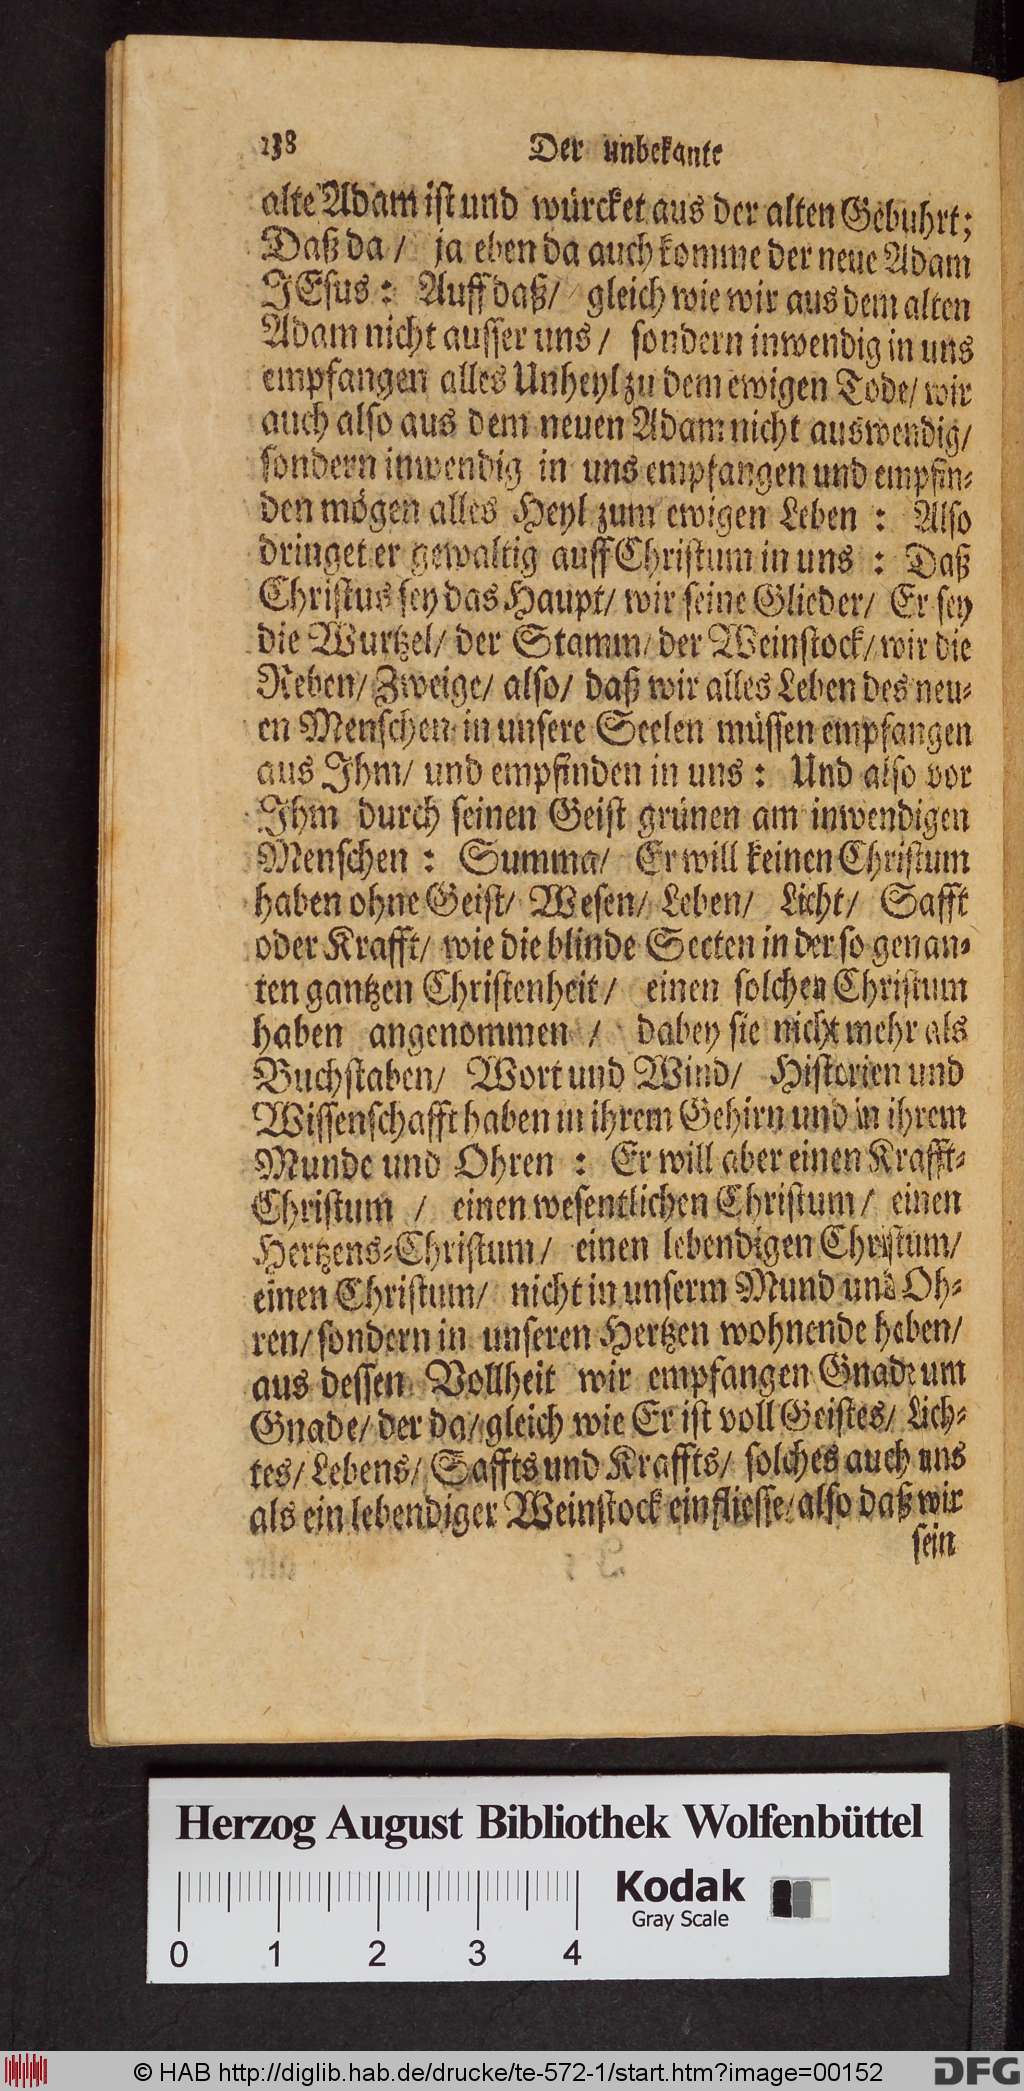 138 Der unbekante
alte Adam ist und würcket aus der alten Gebuhrt;
Daß da / ja eben da auch komme der neue Adam
JEsus : Auff daß / gleich wie wir aus dem alten
Adam nicht ausser uns / sondern inwendig in uns
empfangen alles Unheyl zu dem ewigen Tode / wir
auch also aus dem neuen Adam nicht auswendig /
sondern inwendig in uns empfangen und empfin-
den mögen alles Heyl zum ewigen Leben : Also
dringet er gewaltig auff Christum in uns : Daß
Christus sey das Haupt / wir seine Glieder / Er sey
die Wurtzel / der Stamm / der Weinstock / wir die
Reben / Zweige / also / daß wir alles Leben des neu-
en Menschen in unsere Seelen müssen empfangen
aus Ihm / und empfinden in uns : Und also vor
Ihm durch seinen Geist grünen am inwendigen
Menschen : Summa / Er will keinen Christum
haben ohne Geist / Wesen / Leben / Licht / Safft
oder Krafft / wie die blinde Secten in der so genan-
ten gantzen Christenheit / einen solchen Christum
haben angenommen / dabey sie nicht mehr als
Buchstaben / Wort und Wind / Historien und
Wissenschafft haben in ihrem Gehirn und in ihrem
Munde und Ohren : Er will aber einen Krafft-
Christum / einen wesentlichen Christum / einen
Hertzens-Christum / einen lebendigen Christum /
einen Christum / nicht in unserm Mund und Oh-
ren / sondern in unseren Hertzen wohnende haben /
aus dessen Vollheit wir empfangen Gnade um
Gnade / der da / gleich wie Er ist voll Geistes / Lich-
tes / Lebens / Saffts und Kraffts / solches auch uns
als ein lebendiger Weinstock einfliesse / also daß wir
sein
Herzog August Bibliothek Wolfenbüttel
Kodak
Gray Scale
0 1 2 3 4
© HAB http://diglib.hab.de/drucke/te-572-1/start.htm?image=00152
DFG